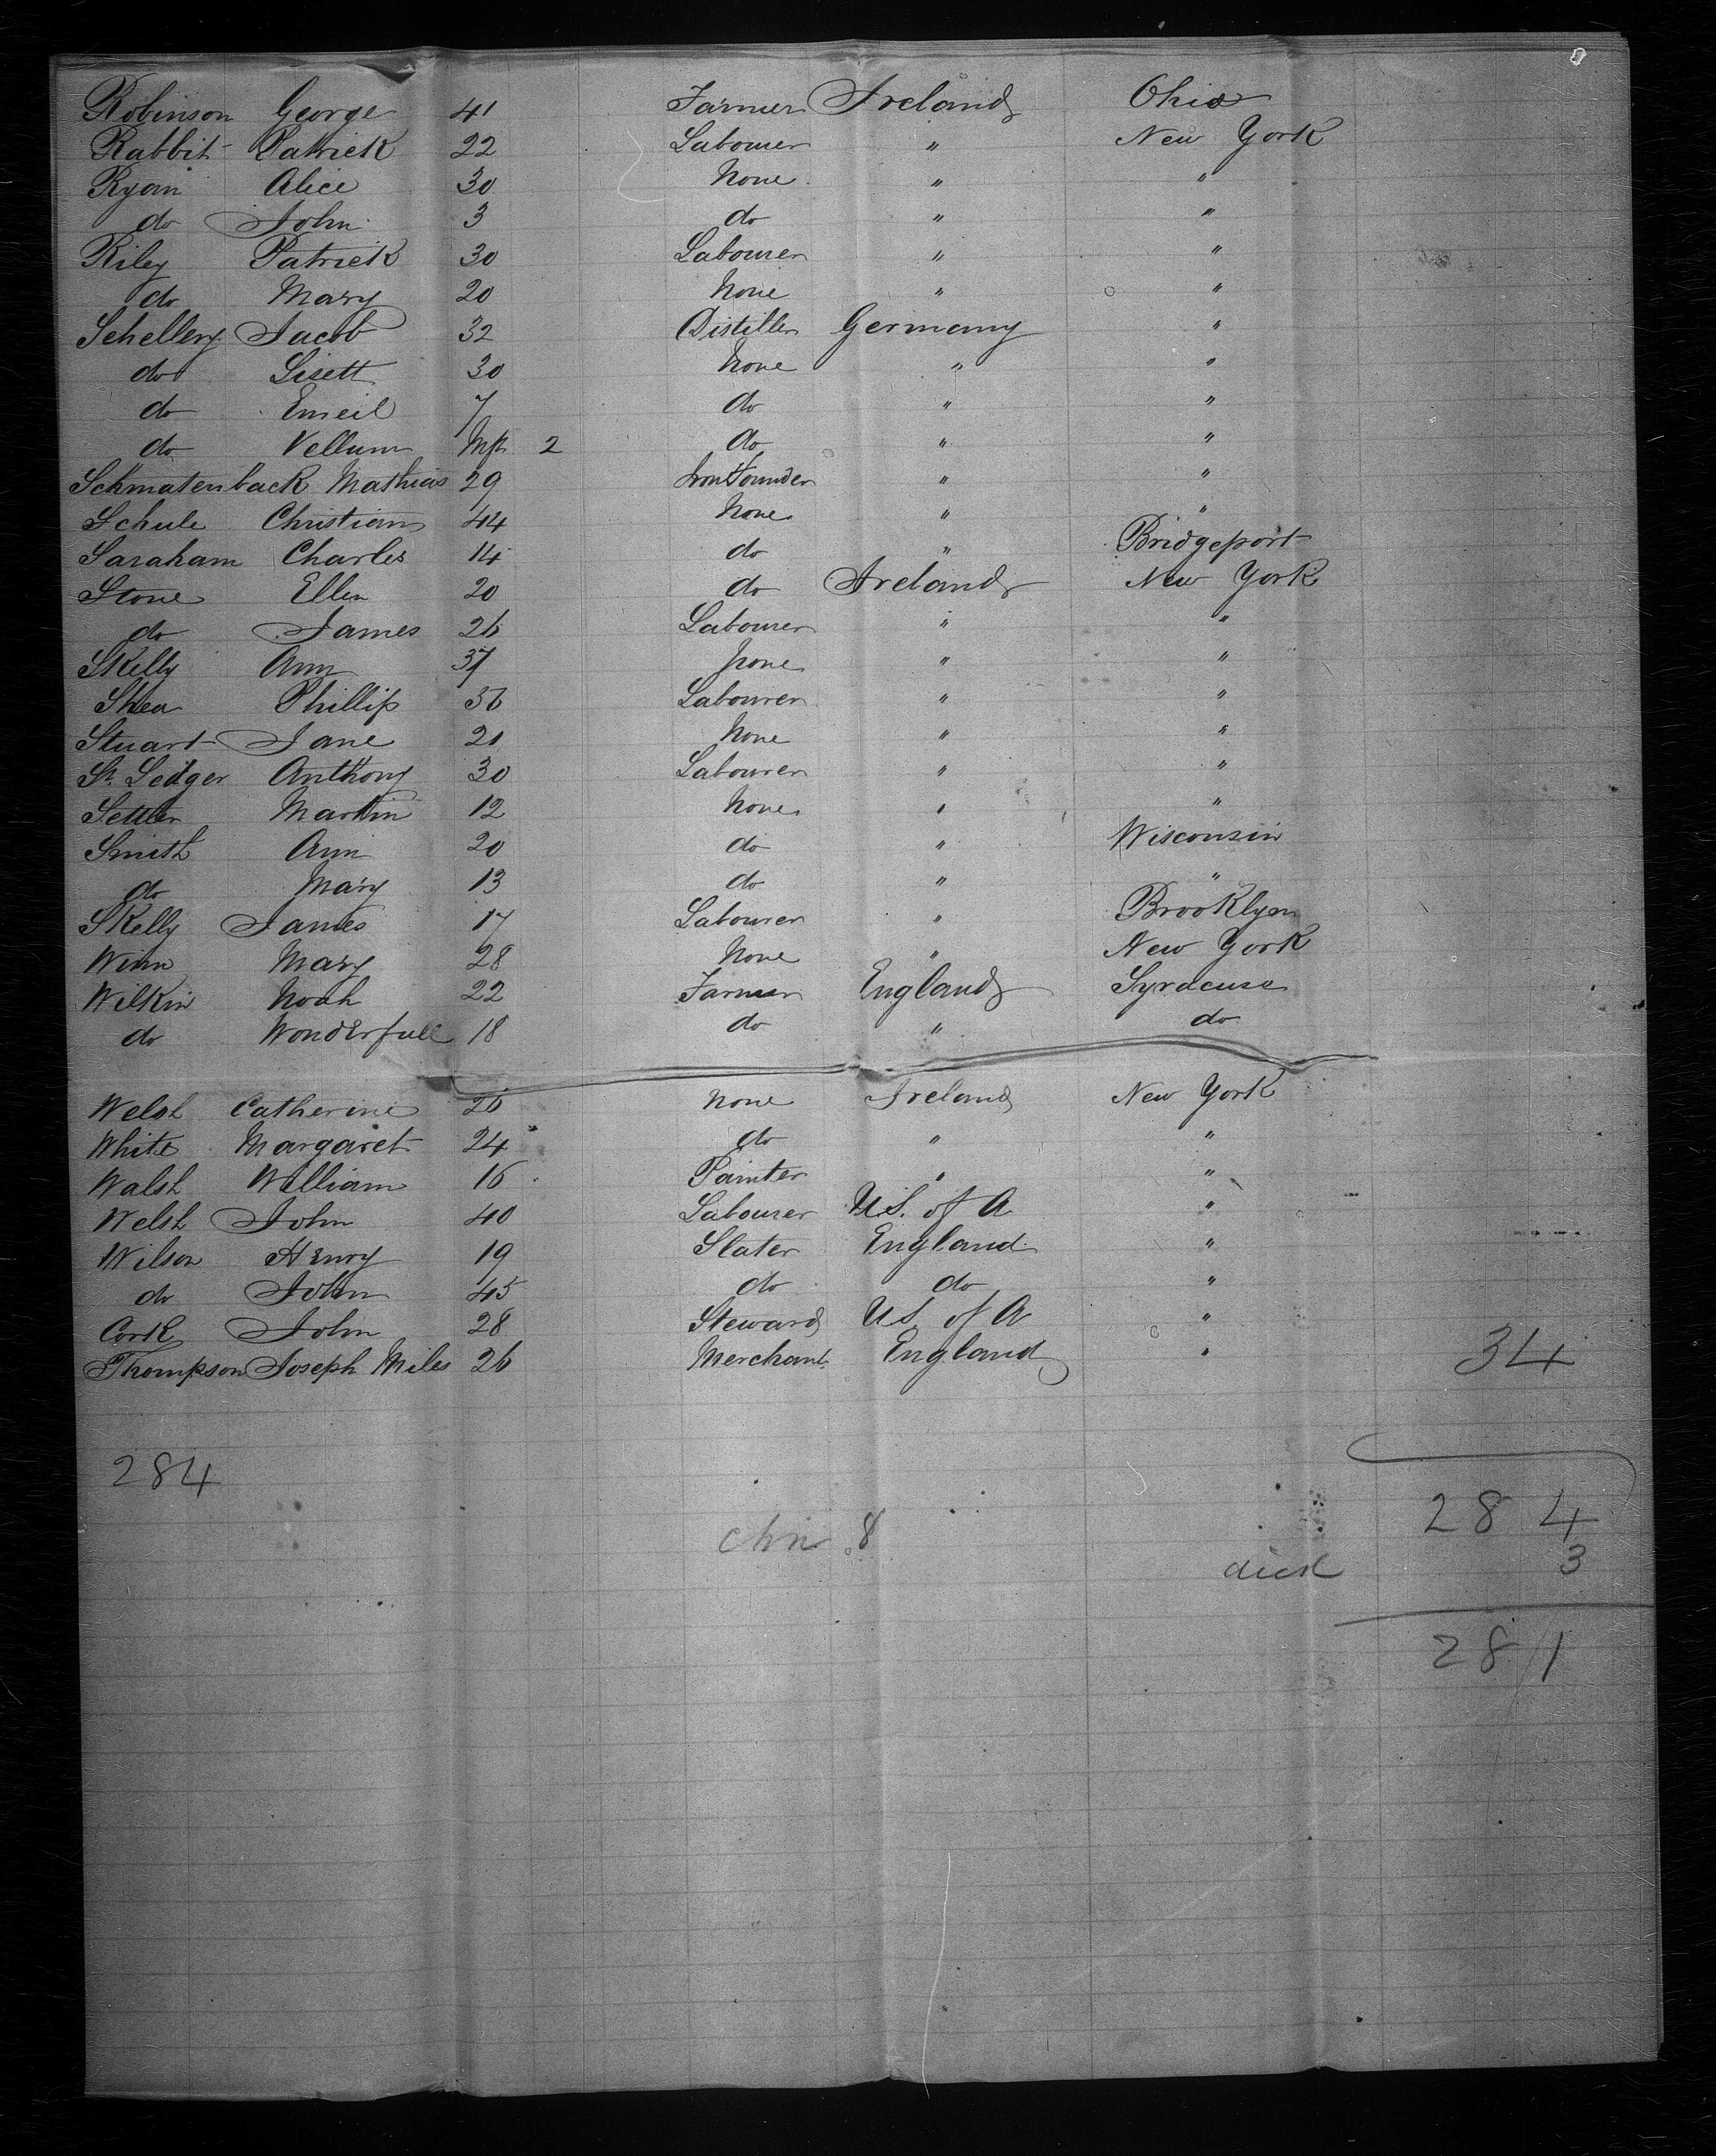 Robinson George 41 Farmer Ireland Ohio
Rabbit Patrick 22 Labourer " New York
Ryan Alice 30 None " "
do John 3 do " "
Riley Patrick 30 Labourer " "
do Mary 20 None " "
Schellery Jacob 32 Distiller Germany "
do Lisett 30 None " "
do Emeil 7 do " "
do Vellum 2 do " "
Schmatenback Mathias 29 Iron Founder " "
Schule Christian 44 None " "
Saraham Charles 14 do " Bridgeport
Stone Ellen 20 do Ireland New York
do James 26 Labourer " "
Skelly Ann 37 None " "
Shea Phillip 36 Labourer " "
Stuart Jane 21 None " "
St. Ledger Anthony 30 Labourer " "
Settler Martin 12 None " "
Smith Ann 20 do " Wisconsin
do Mary 13 do " "
Skelly James 17 Labourer " Brooklyn
Winn Mary 28 None " New York
Wilkin Noah 22 Farmer England Syracuse
do Wonderfull 18 do " do
Welsh Catherine 26 None Ireland New York
White Margaret 24 do " "
Walsh William 16 Painter " "
Welsh John 40 Labourer U.S. of A "
Wilson Henry 19 Slater England "
do John 45 do do "
Cork John 28 Steward U.S. of A "
Thompson Joseph Miles 26 Merchant England " 34
284
284
8
died 3
281